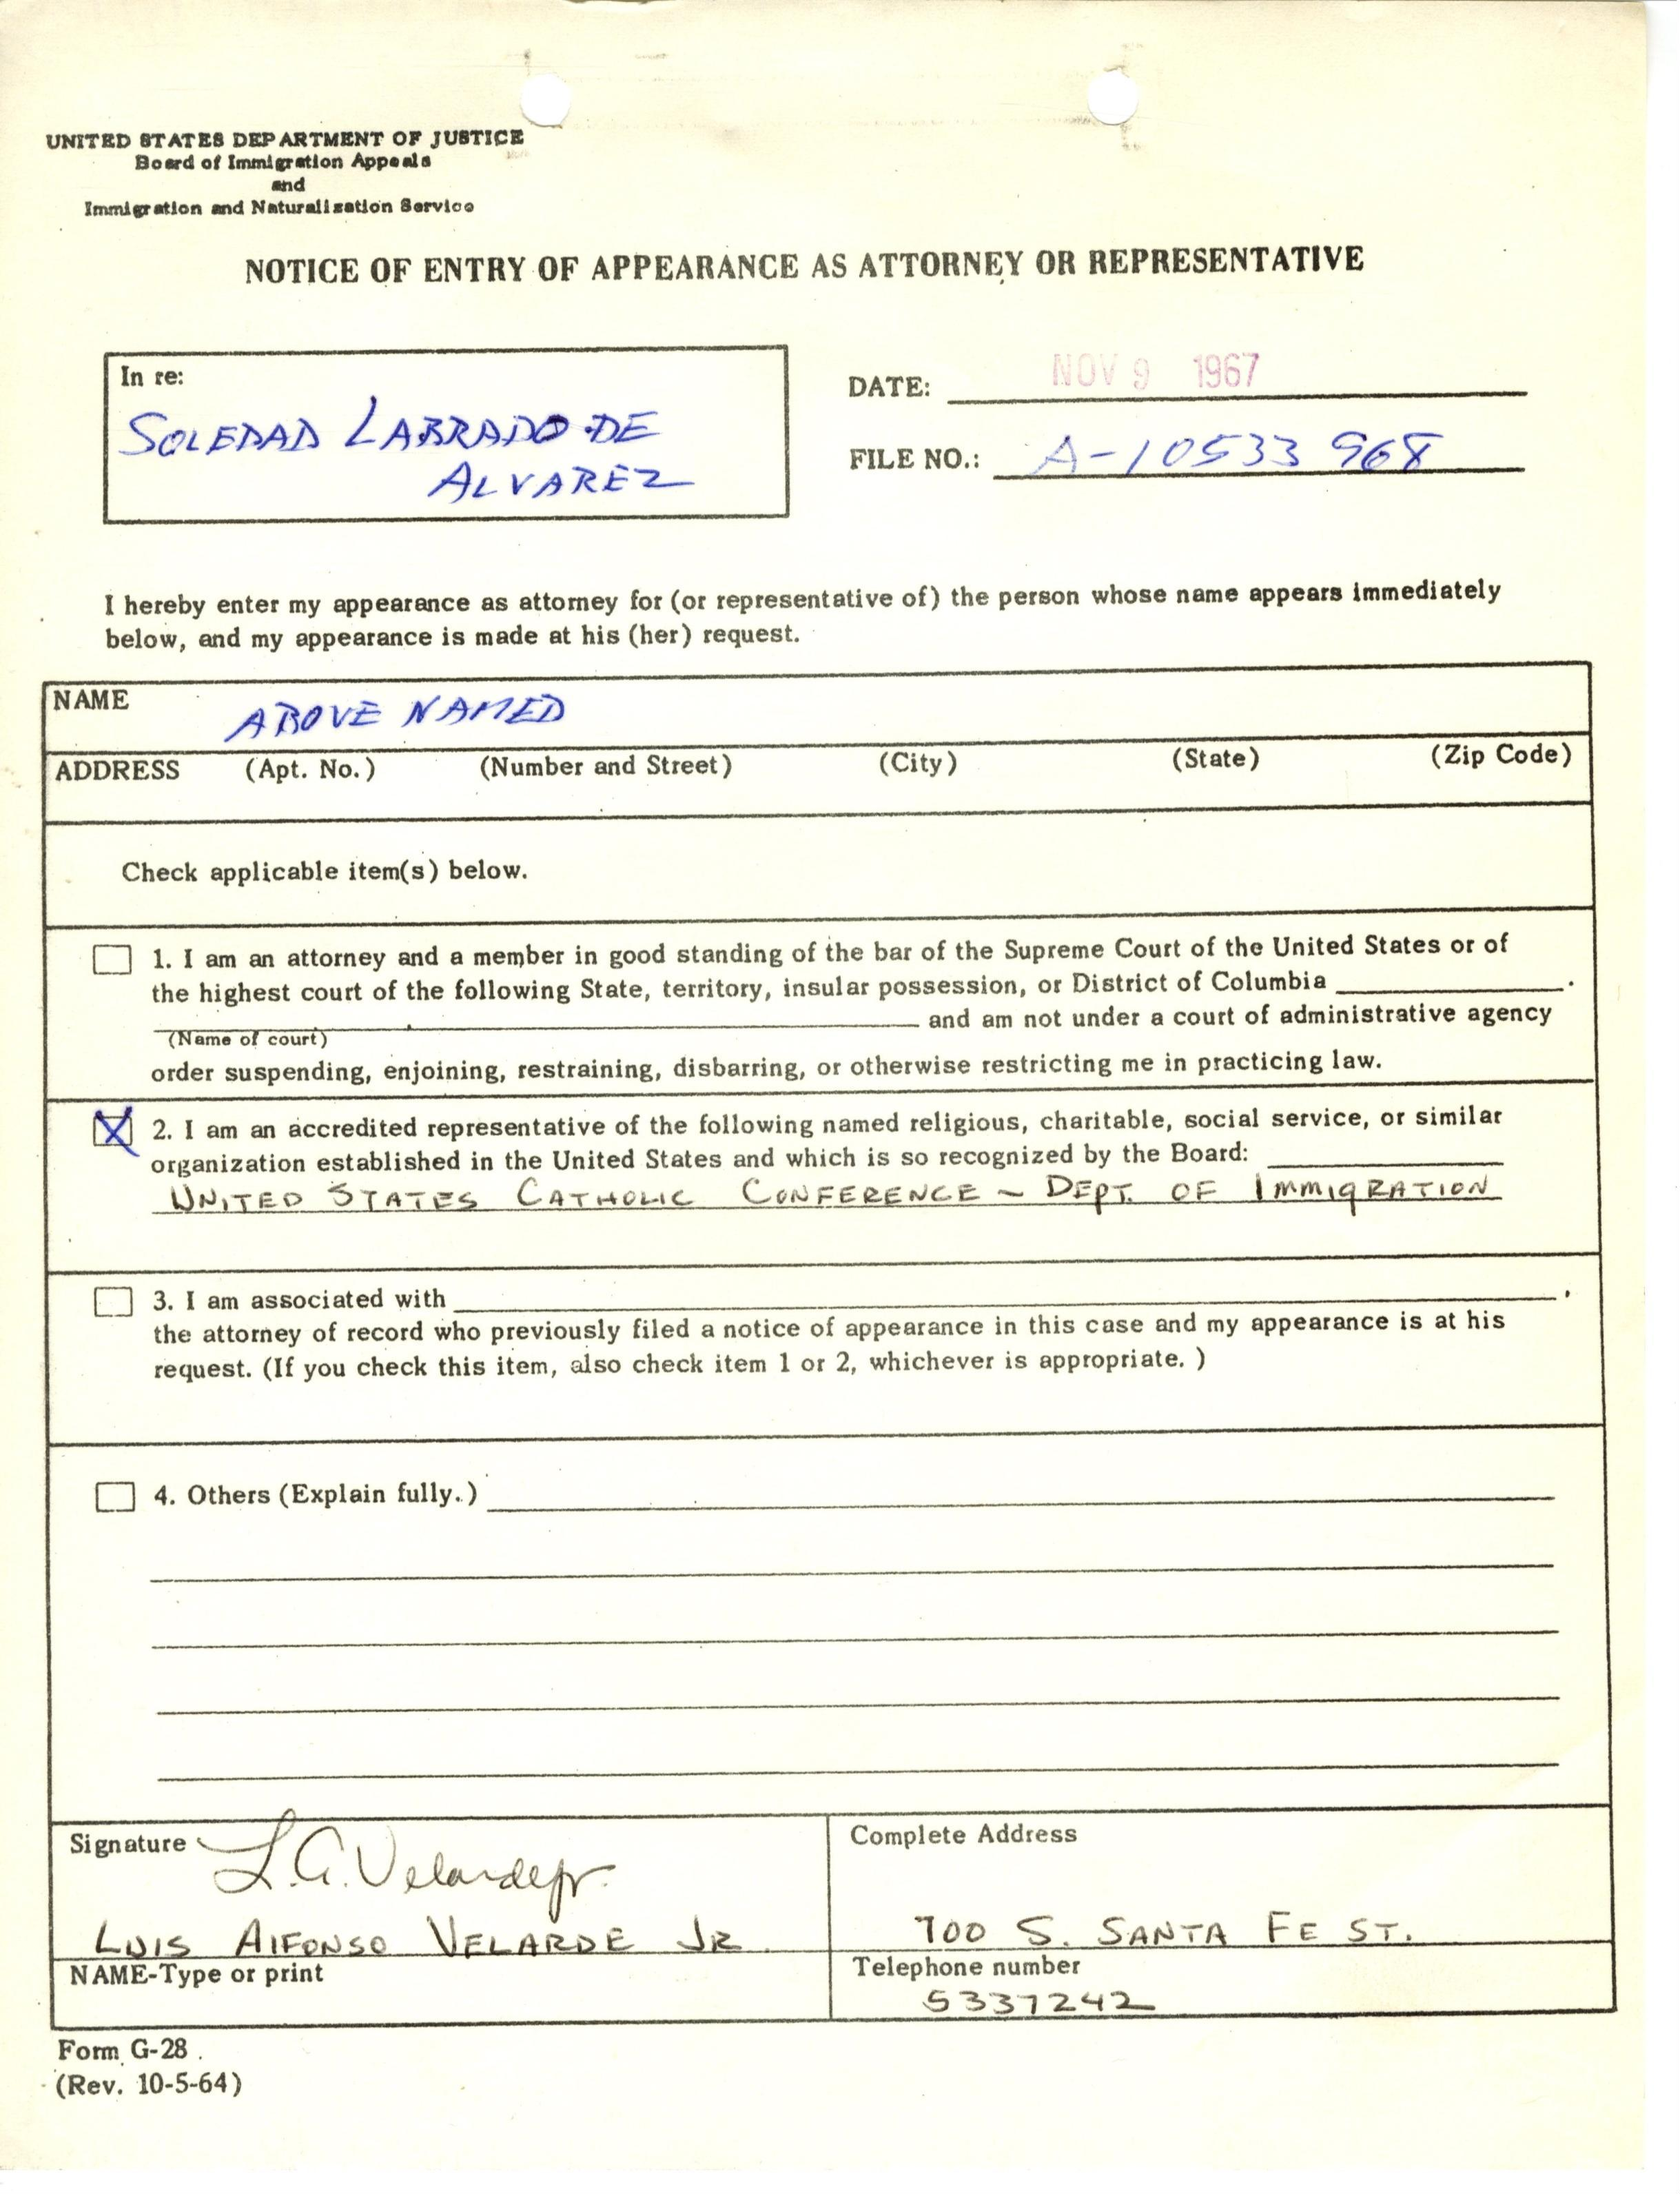 UNITED STATES DEPARTMENT OF JUSTICE
Board of Immigration Appeals
and
Immigration and Naturalization Service
NOTICE OF ENTRY OF APPEARANCE AS ATTORNEY OR REPRESENTATIVE
In re:
SOLEDAD LABRADO DE
ALVAREZ
DATE: NOV 9 1967
FILE NO.: A-10533 968
I hereby enter my appearance as attorney for (or representative of) the person whose name appears immediately
below, and my appearance is made at his (her) request.
NAME ABOVE NAMED
ADDRESS (Apt. No.) (Number and Street) (City) (State) (Zip Code)
Check applicable item(s) below.
1. I am an attorney and a member in good standing of the bar of the Supreme Court of the United States or of
the highest court of the following State, territory, insular possession, or District of Columbia .
and am not under a court of administrative agency
(Name of court)
order suspending, enjoining, restraining, disbarring, or otherwise restricting me in practicing law.
X 2. I am an accredited representative of the following named religious, charitable, social service, or similar
organization established in the United States and which is so recognized by the Board:
UNITED STATES CATHOLIC CONFERENCE - DEPT. OF IMMIGRATION
3. I am associated with ,
the attorney of record who previously filed a notice of appearance in this case and my appearance is at his
request. (If you check this item, also check item 1 or 2, whichever is appropriate. )
4. Others (Explain fully.)
Signature L. A. Velarde Jr.
LUIS AlFONSO VELARDE JR.
NAME-Type or print
Complete Address
700 S. SANTA FE ST.
Telephone number
5337242
Form G-28
(Rev. 10-5-64)